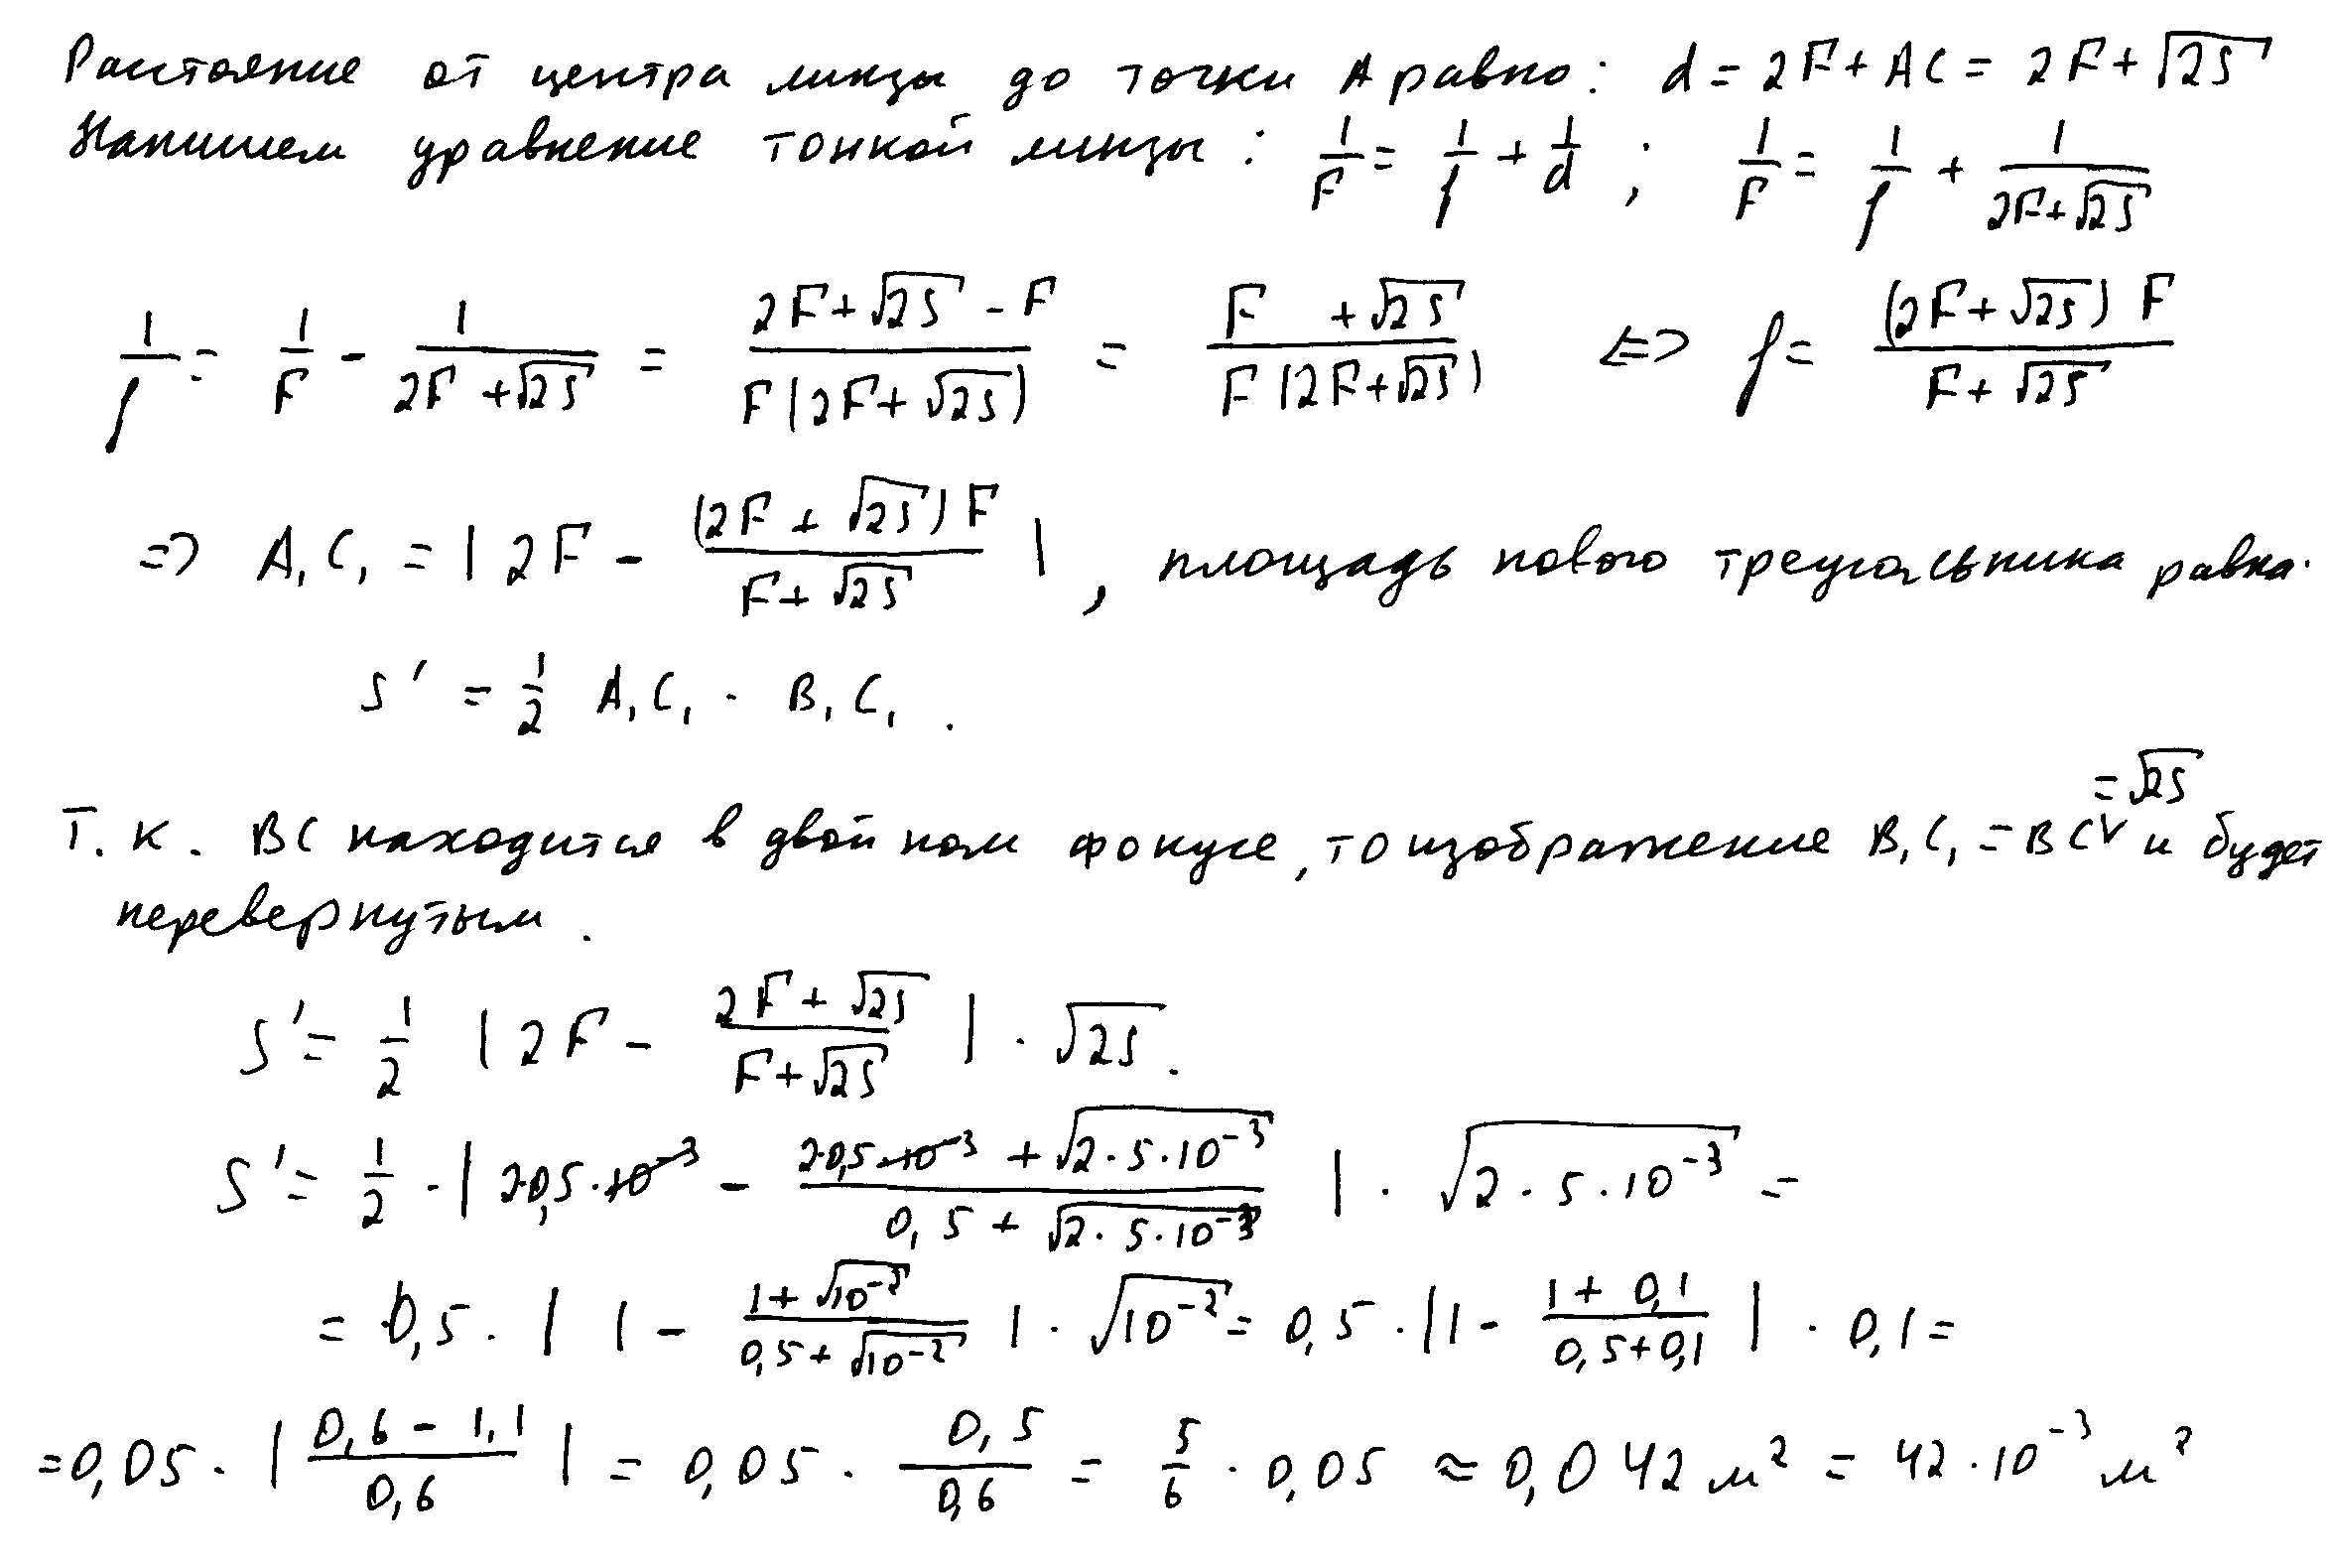 Расстояние от центра линзы до точки A равно: d = 2F + AC = 2F + √(2S)
Напишем уравнение тонкой линзы: 1/F = 1/f + 1/d ; 1/F = 1/f + 1/(2F+√(2S))
1/f = 1/F - 1/(2F+√(2S)) = (2F+√(2S) - F)/(F(2F+√(2S))) = (F + √(2S))/(F(2F+√(2S))) <=> f = ((2F+√(2S)) F)/(F+√(2S))
=> A₁C₁ = | 2F - ((2F + √(2S)) F)/(F+√(2S)) | , площадь нового треугольника равна.
S' = 1/2 A₁C₁ · B₁C₁ .
= √(2S)
Т.к. BC находится в двойном фокусе, то изображение B₁C₁ = BC и будет
перевернутым.
S' = 1/2 | 2F - (2F + √(2S))/(F+√(2S)) | · √(2S) .
S' = 1/2 · | 2·0,5·10⁻³ - (2·0,5·10⁻³ + √(2·5·10⁻³))/(0,5 + √(2·5·10⁻³)) | · √(2·5·10⁻³) =
= 0,5 · | 1 - (1+√(10⁻²))/(0,5+√(10⁻²)) | · √(10⁻²) = 0,5 · |1 - (1+0,1)/(0,5+0,1) | · 0,1 =
= 0,05 · | (0,6 - 1,1)/0,6 | = 0,05 · 0,5/0,6 = 5/6 · 0,05 ≈ 0,042 м² = 42·10⁻³ м²